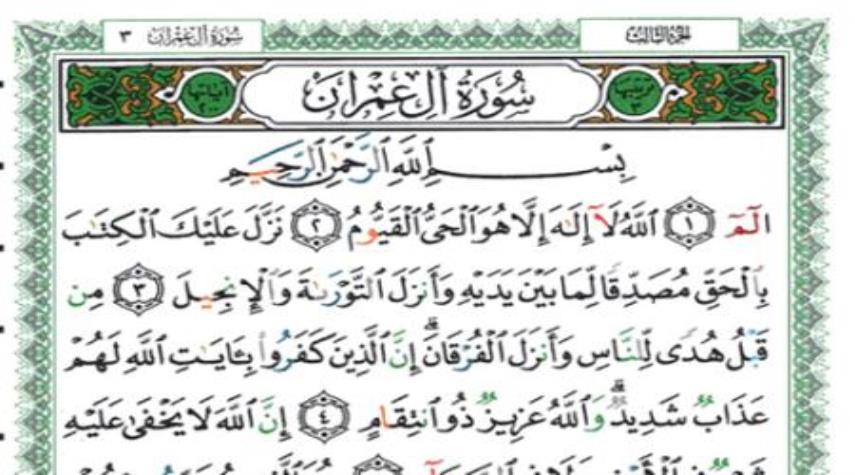 الجزء الثالث
سورة آل عمران ٣
مرتبتها ٣
سُورَةُ آلِ عِمْرَان
آياتها
بِسْمِ اللَّهِ الرَّحْمَٰنِ الرَّحِيمِ
الٓمٓ ١ اللَّهُ لَآ إِلَٰهَ إِلَّا هُوَ الْحَيُّ الْقَيُّومُ ٢ نَزَّلَ عَلَيْكَ الْكِتَٰبَ
بِالْحَقِّ مُصَدِّقًا لِّمَا بَيْنَ يَدَيْهِ وَأَنزَلَ التَّوْرَىٰةَ وَالْإِنجِيلَ ٣ مِن
قَبْلُ هُدًى لِّلنَّاسِ وَأَنزَلَ الْفُرْقَانَ ۗ إِنَّ الَّذِينَ كَفَرُوا بِـَٔايَٰتِ اللَّهِ لَهُمْ
عَذَابٌ شَدِيدٌ ۗ وَاللَّهُ عَزِيزٌ ذُو انتِقَامٍ ٤ إِنَّ اللَّهَ لَا يَخْفَىٰ عَلَيْهِ